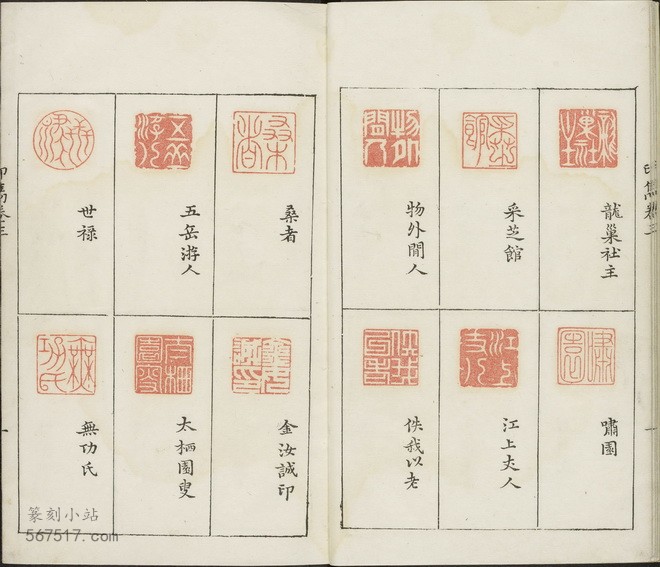 印雋卷三
龍巢社主
采芝館
物外閒人
嘯園
江上丈人
佚我以老
桑者
五岳游人
世禄
金汝誠印
太栖園叟
無功氏
印雋卷三
篆刻小站
567517.com